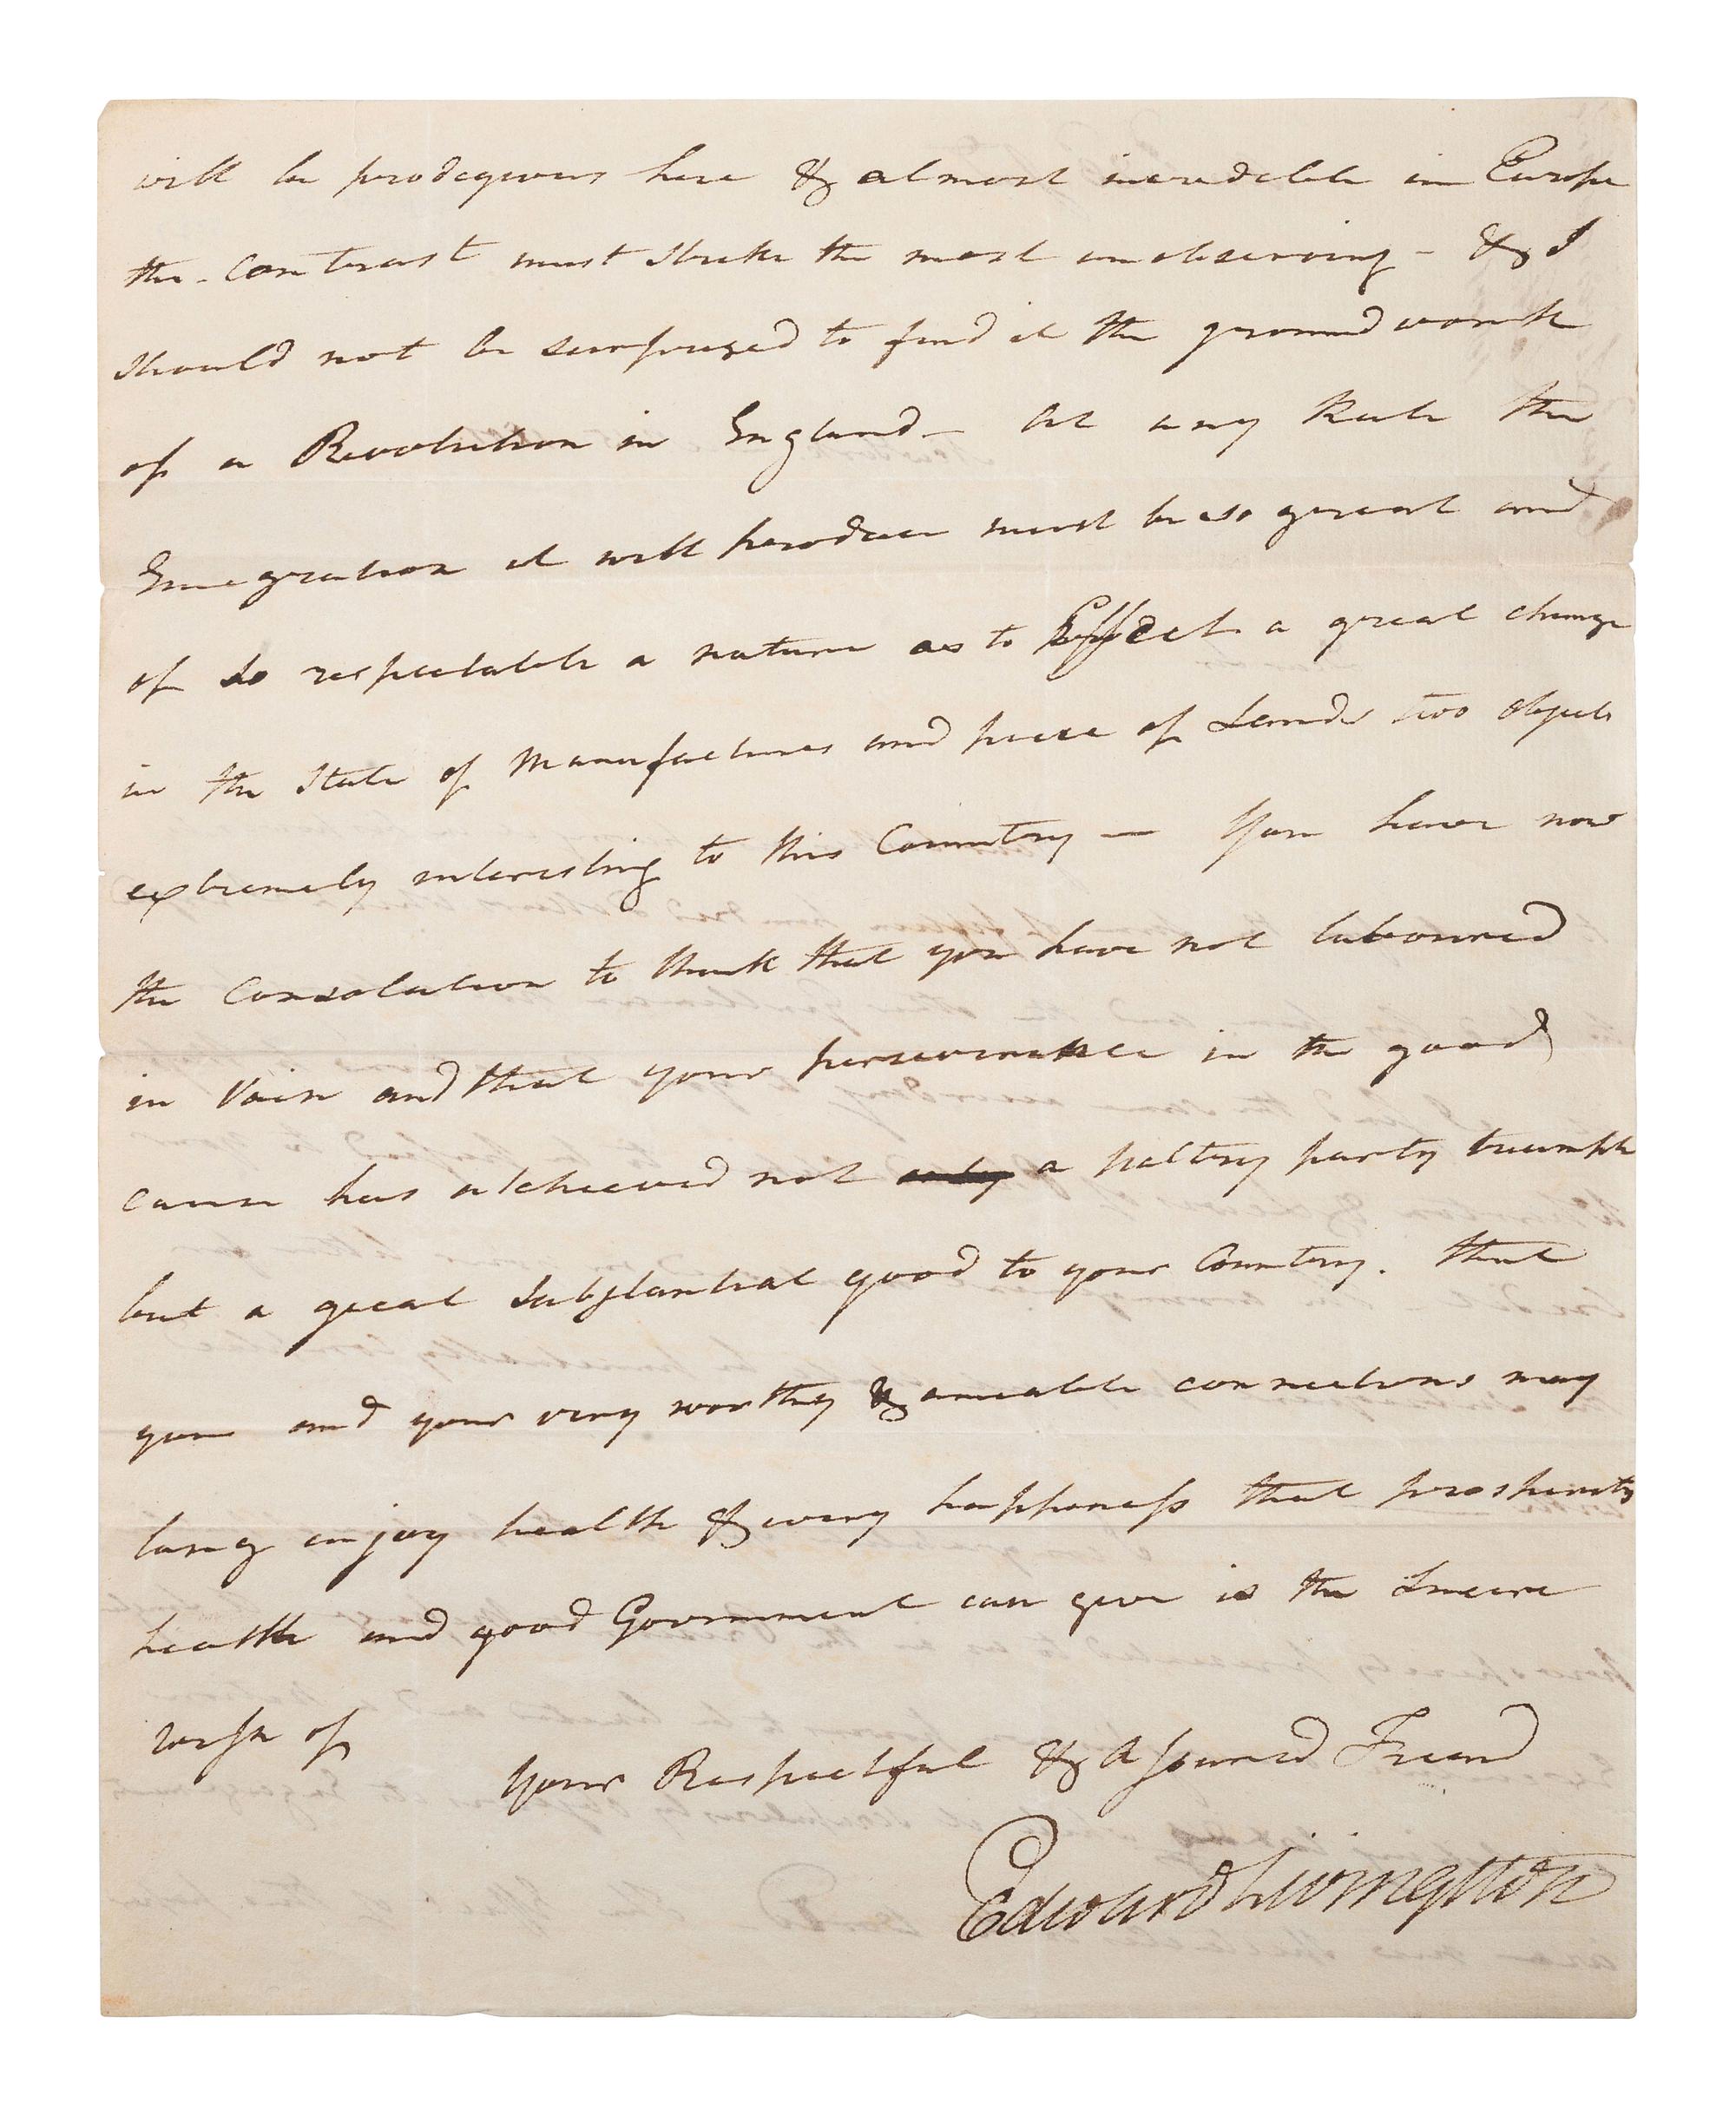 will be prodegeous here & almost incredeble in Europe
the contrast must strike the most unobserving - & I
should not be surprized to find it the ground work
of a Revolution in England - At any Rate the
Emegration it will produce must be so great and
of so respectable a nature as to Effect a great change
in the State of Manufactures and price of Lands two objects
extremely interesting to this Country — You have now
the Consolation to think that you have not laboured
in Vain and that your perseverance in the good
cause has atchieved not only a paltry party triumph
but a great Substantial good to your Country. that
you and your very worthy & amiable connections may
long enjoy health & every happiness that prosperity
health and good Government can give is the Sincere
wish of
Your Respectful & Assured Friend
Edward Livingston